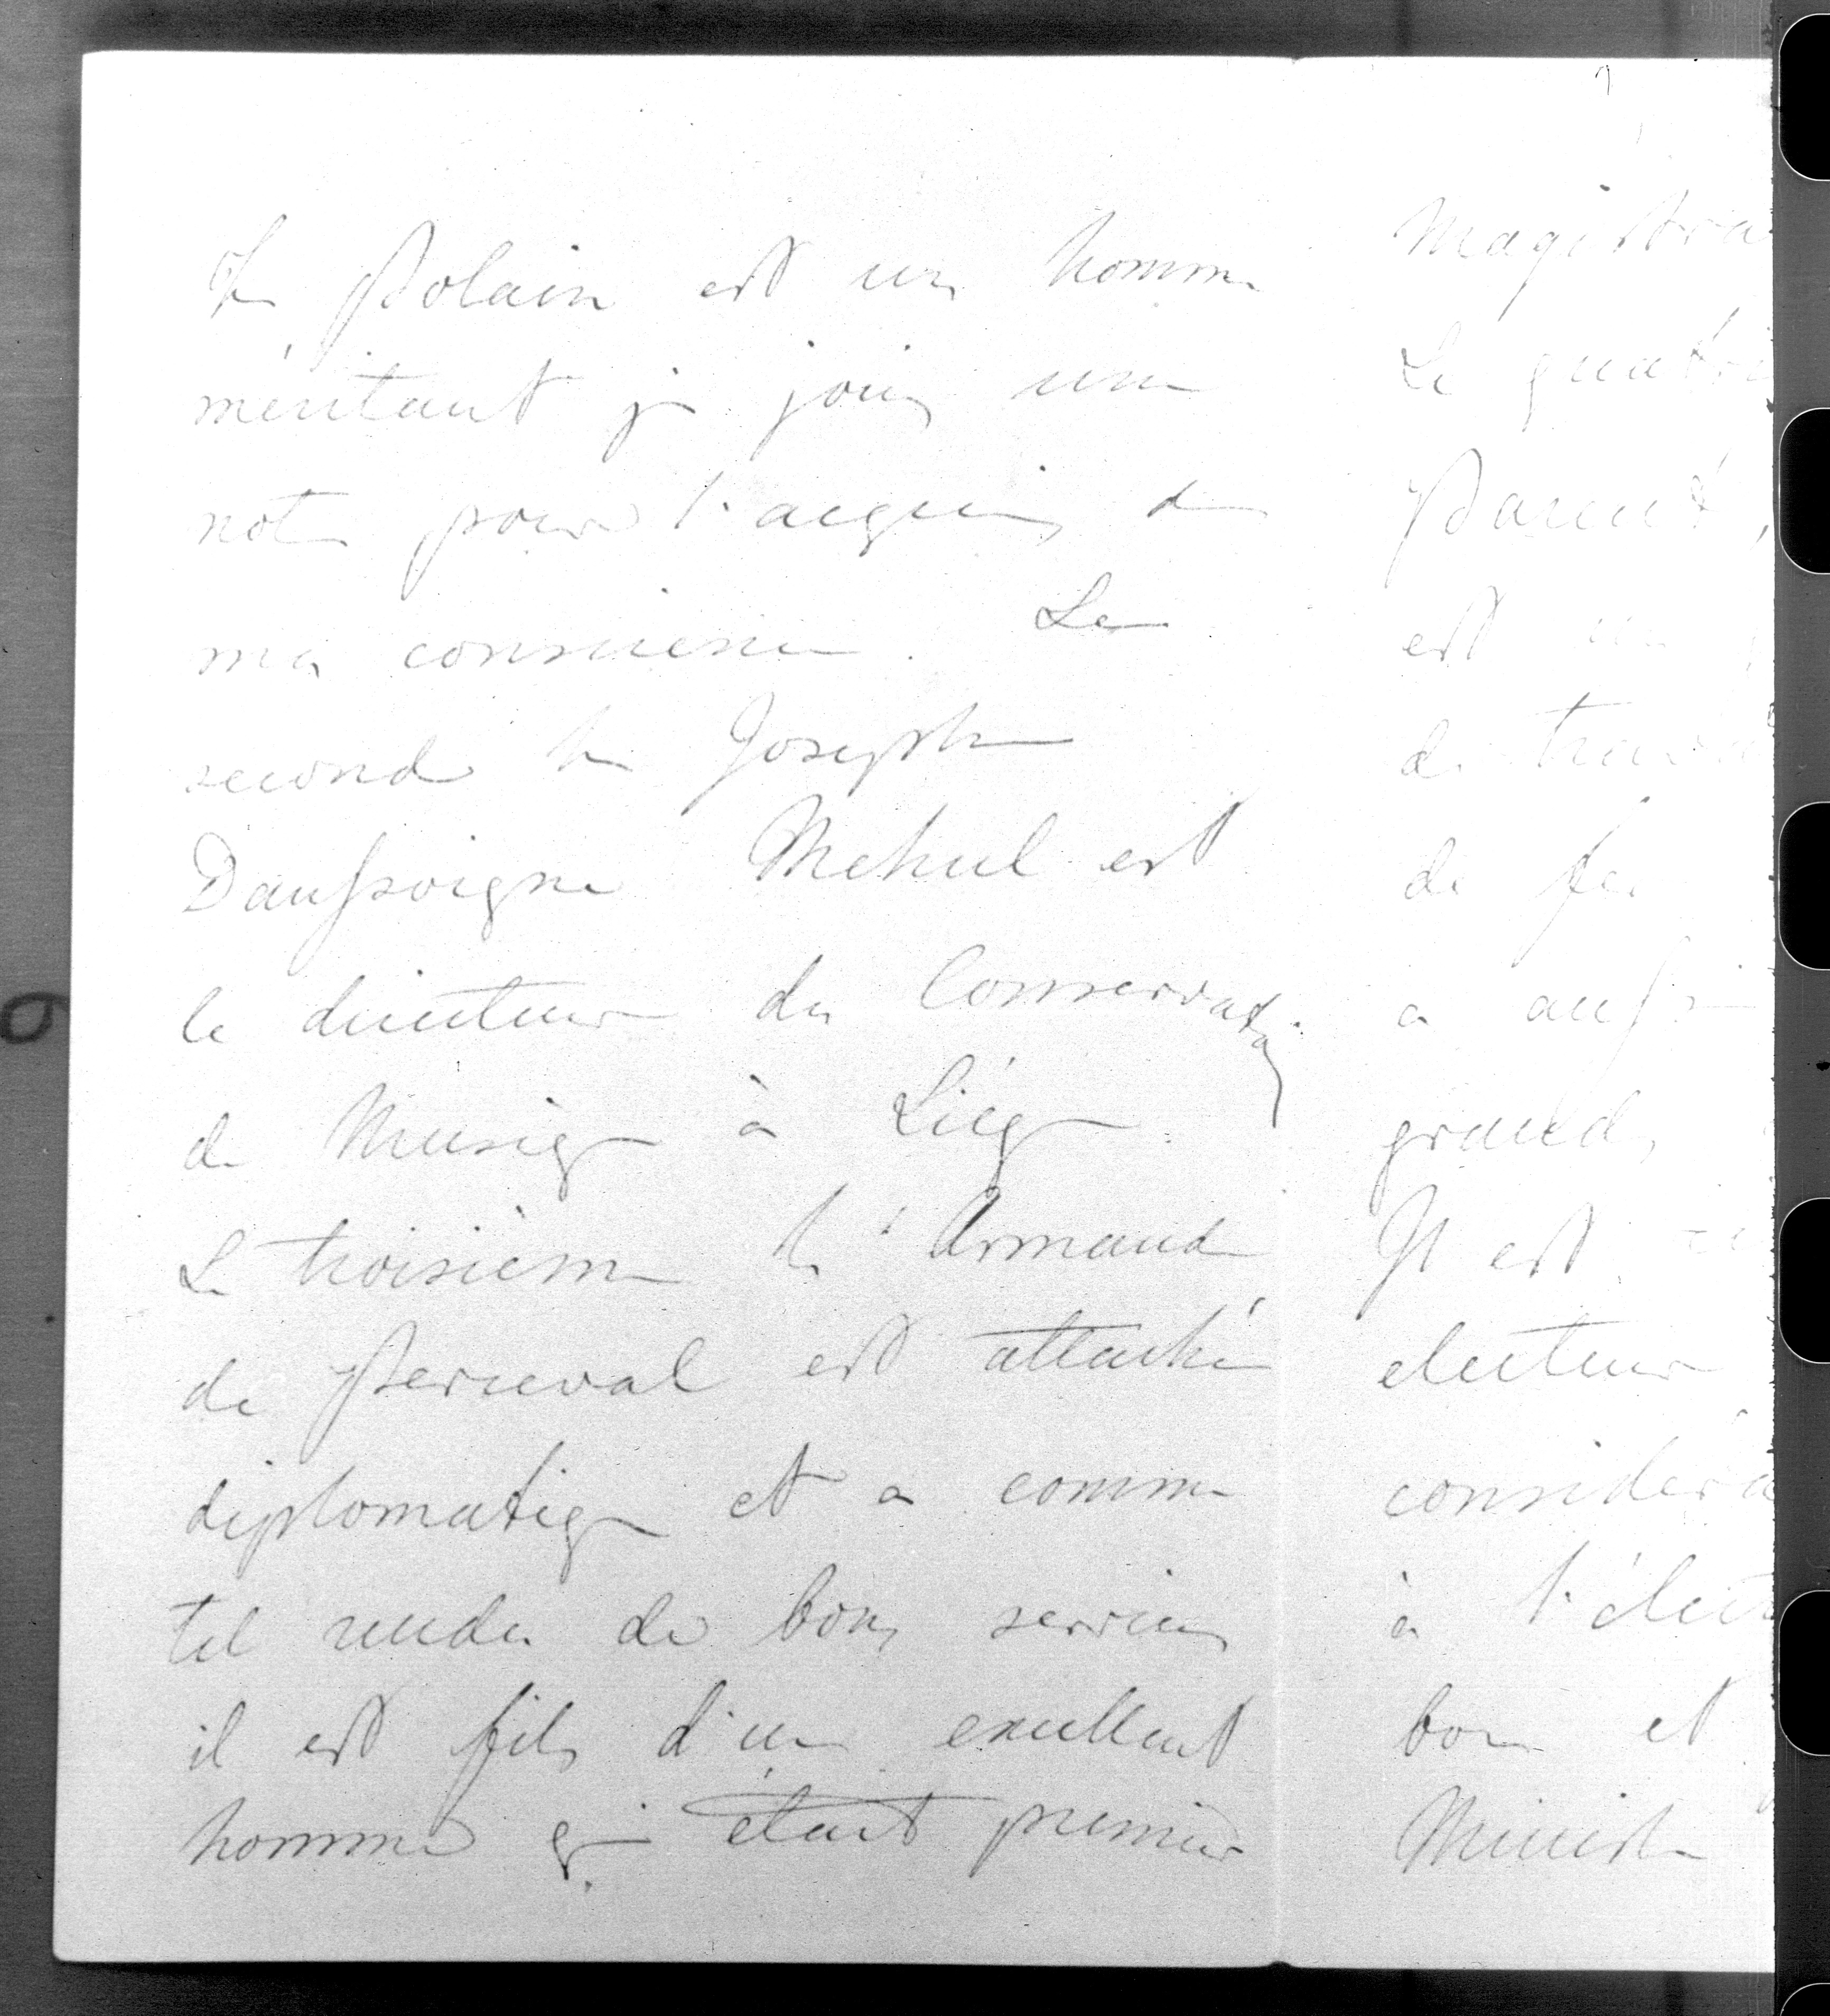 Polain est un homme
méritant je joins une
note pour l'acquis de
ma conscience. Le
second Mr Joseph
Daussoigne Mehul est
le directeur du Conservat.
de Musique à Liége
Le troisième Mr Armand
de Perceval est attaché
diplomatique et a comme
tel rendu de bons services
il est fils d'un excellent
homme qui était premier
Magistra
Le quatri
Parent,
est un
de trava
de fer
a aussi
grand,
Il est
electeur
considéra
à l'élect
bon et
Ministre